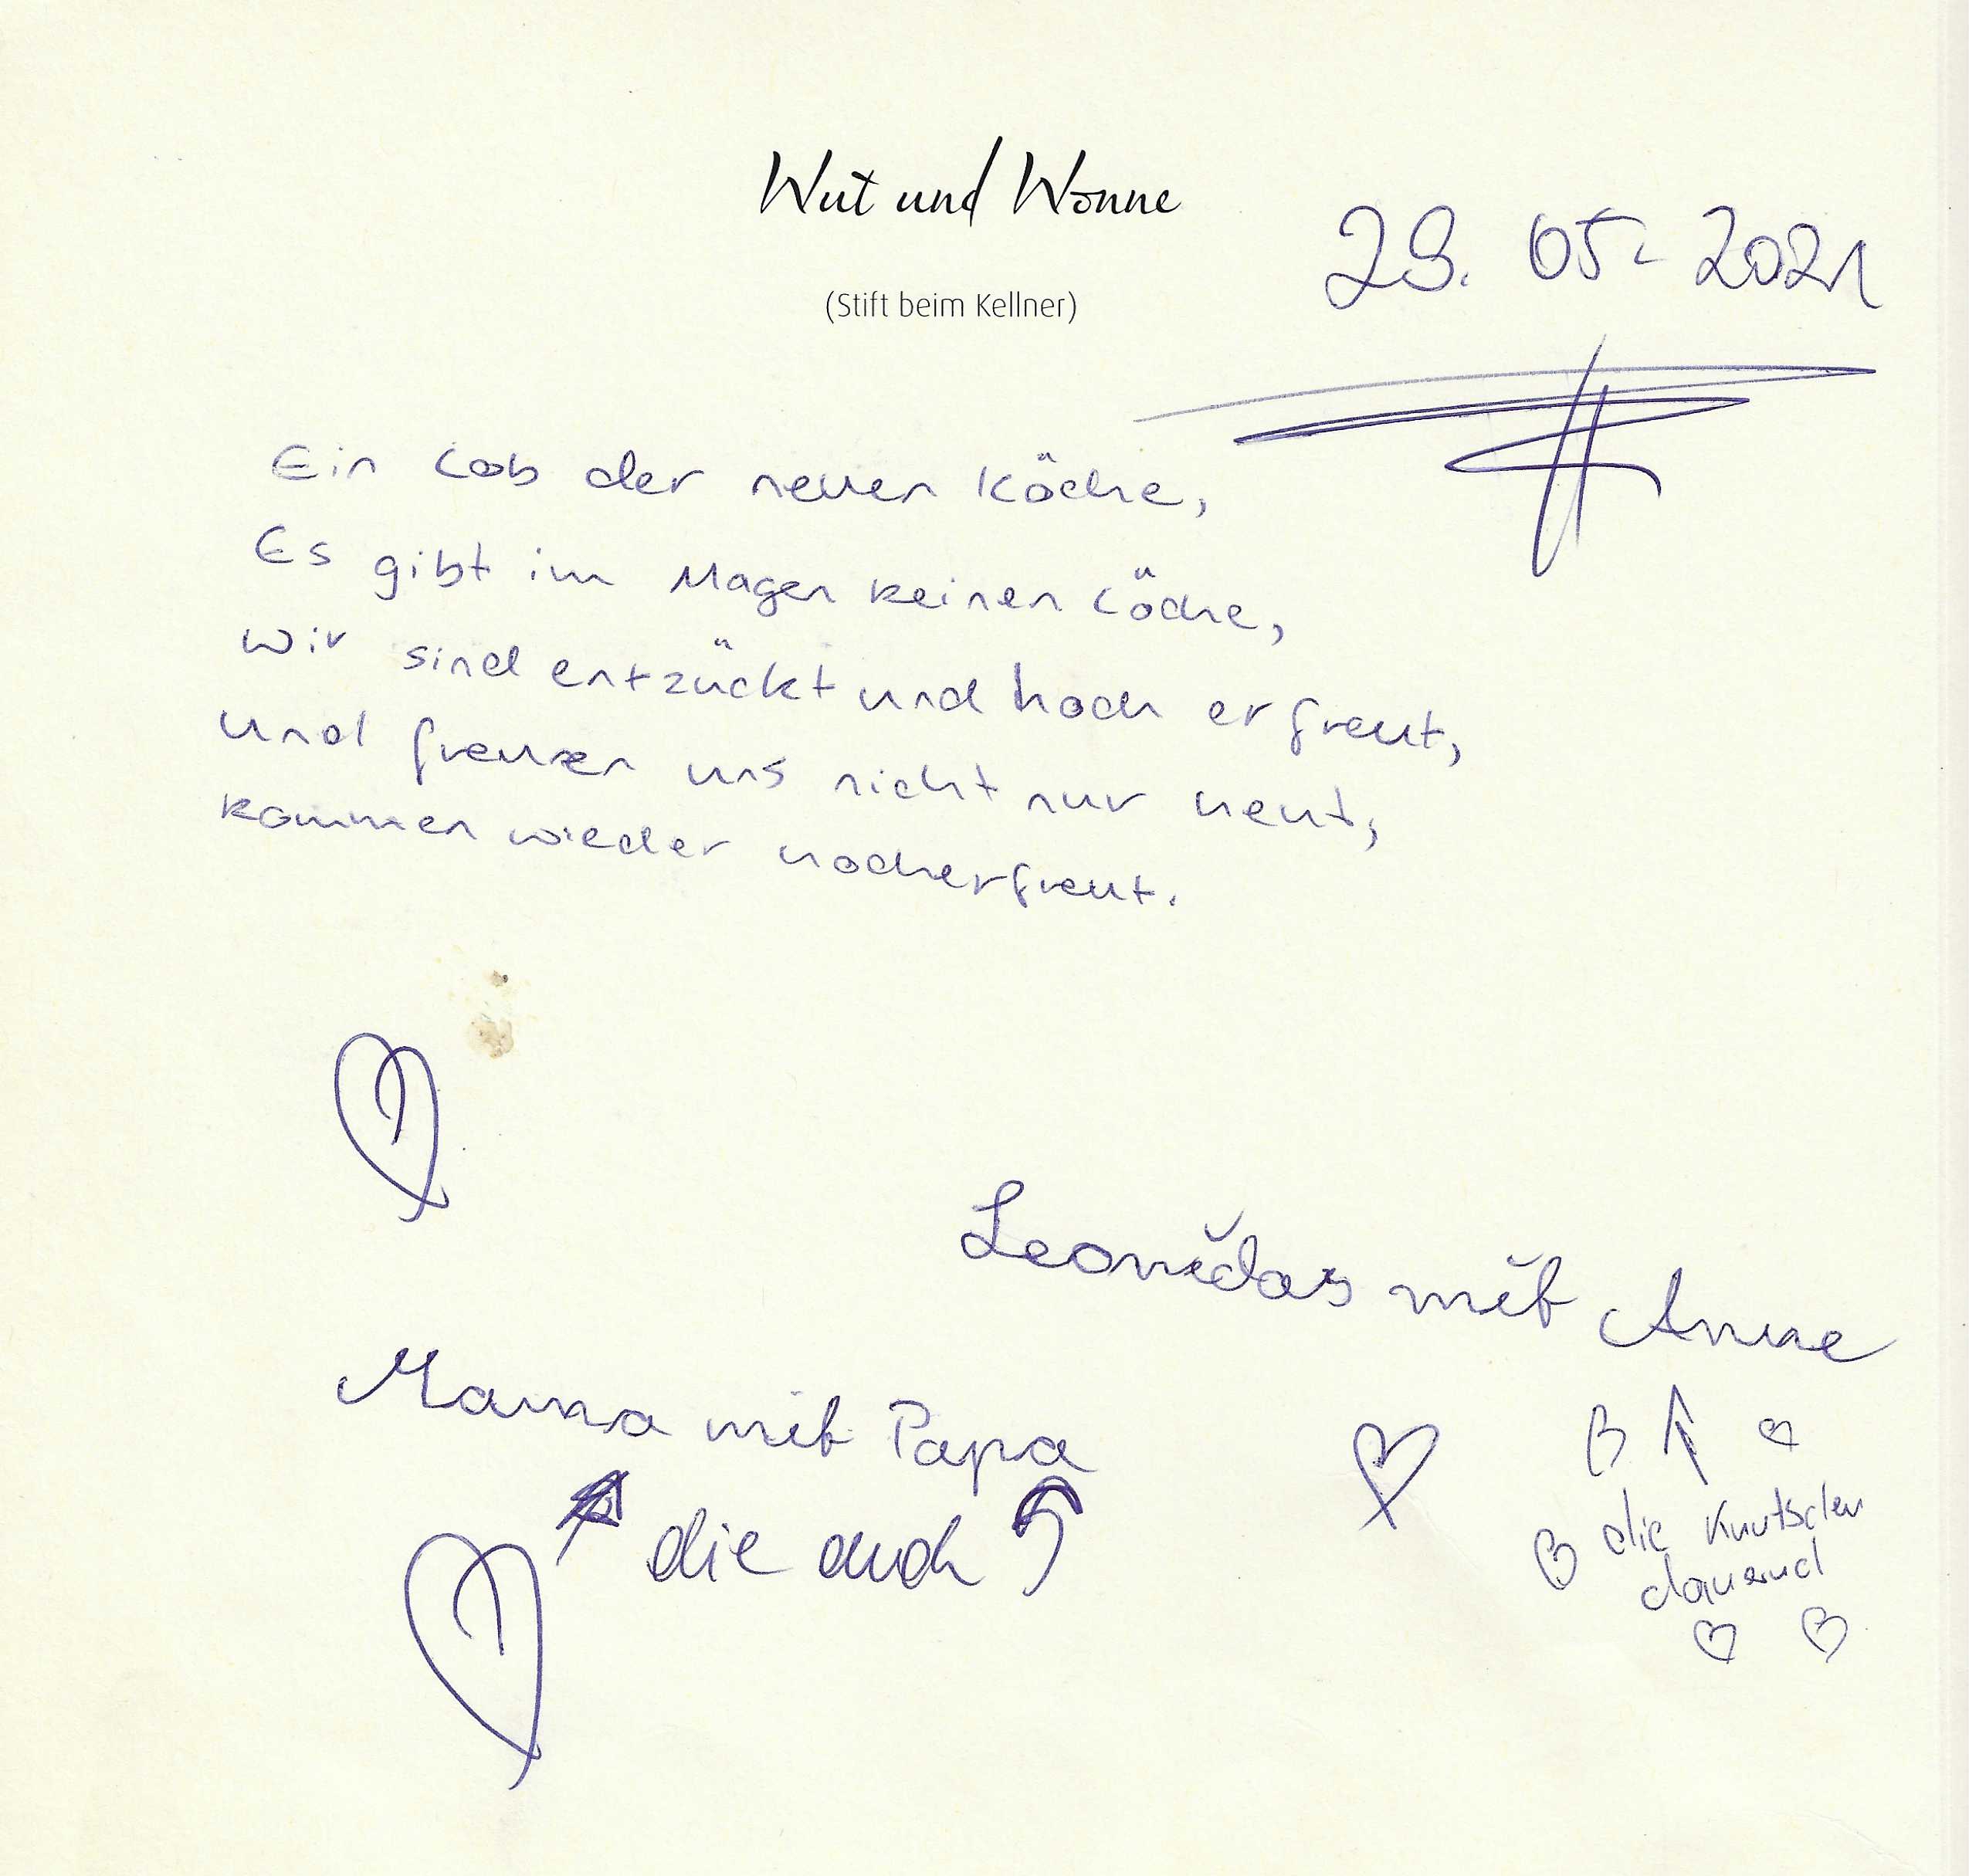 Wut und Wonne
(Stift beim Kellner)
29. 05. 2021
Ein Lob der neuen Köche,
Es gibt im Magen keinen Löche,
wir sind entzückt und hoch erfreut,
und freuen uns nicht nur heut,
kommen wieder hocherfreut.
Leonidas mit Anne
Mama mit Papa
die auch
die Knutschen
dauernd